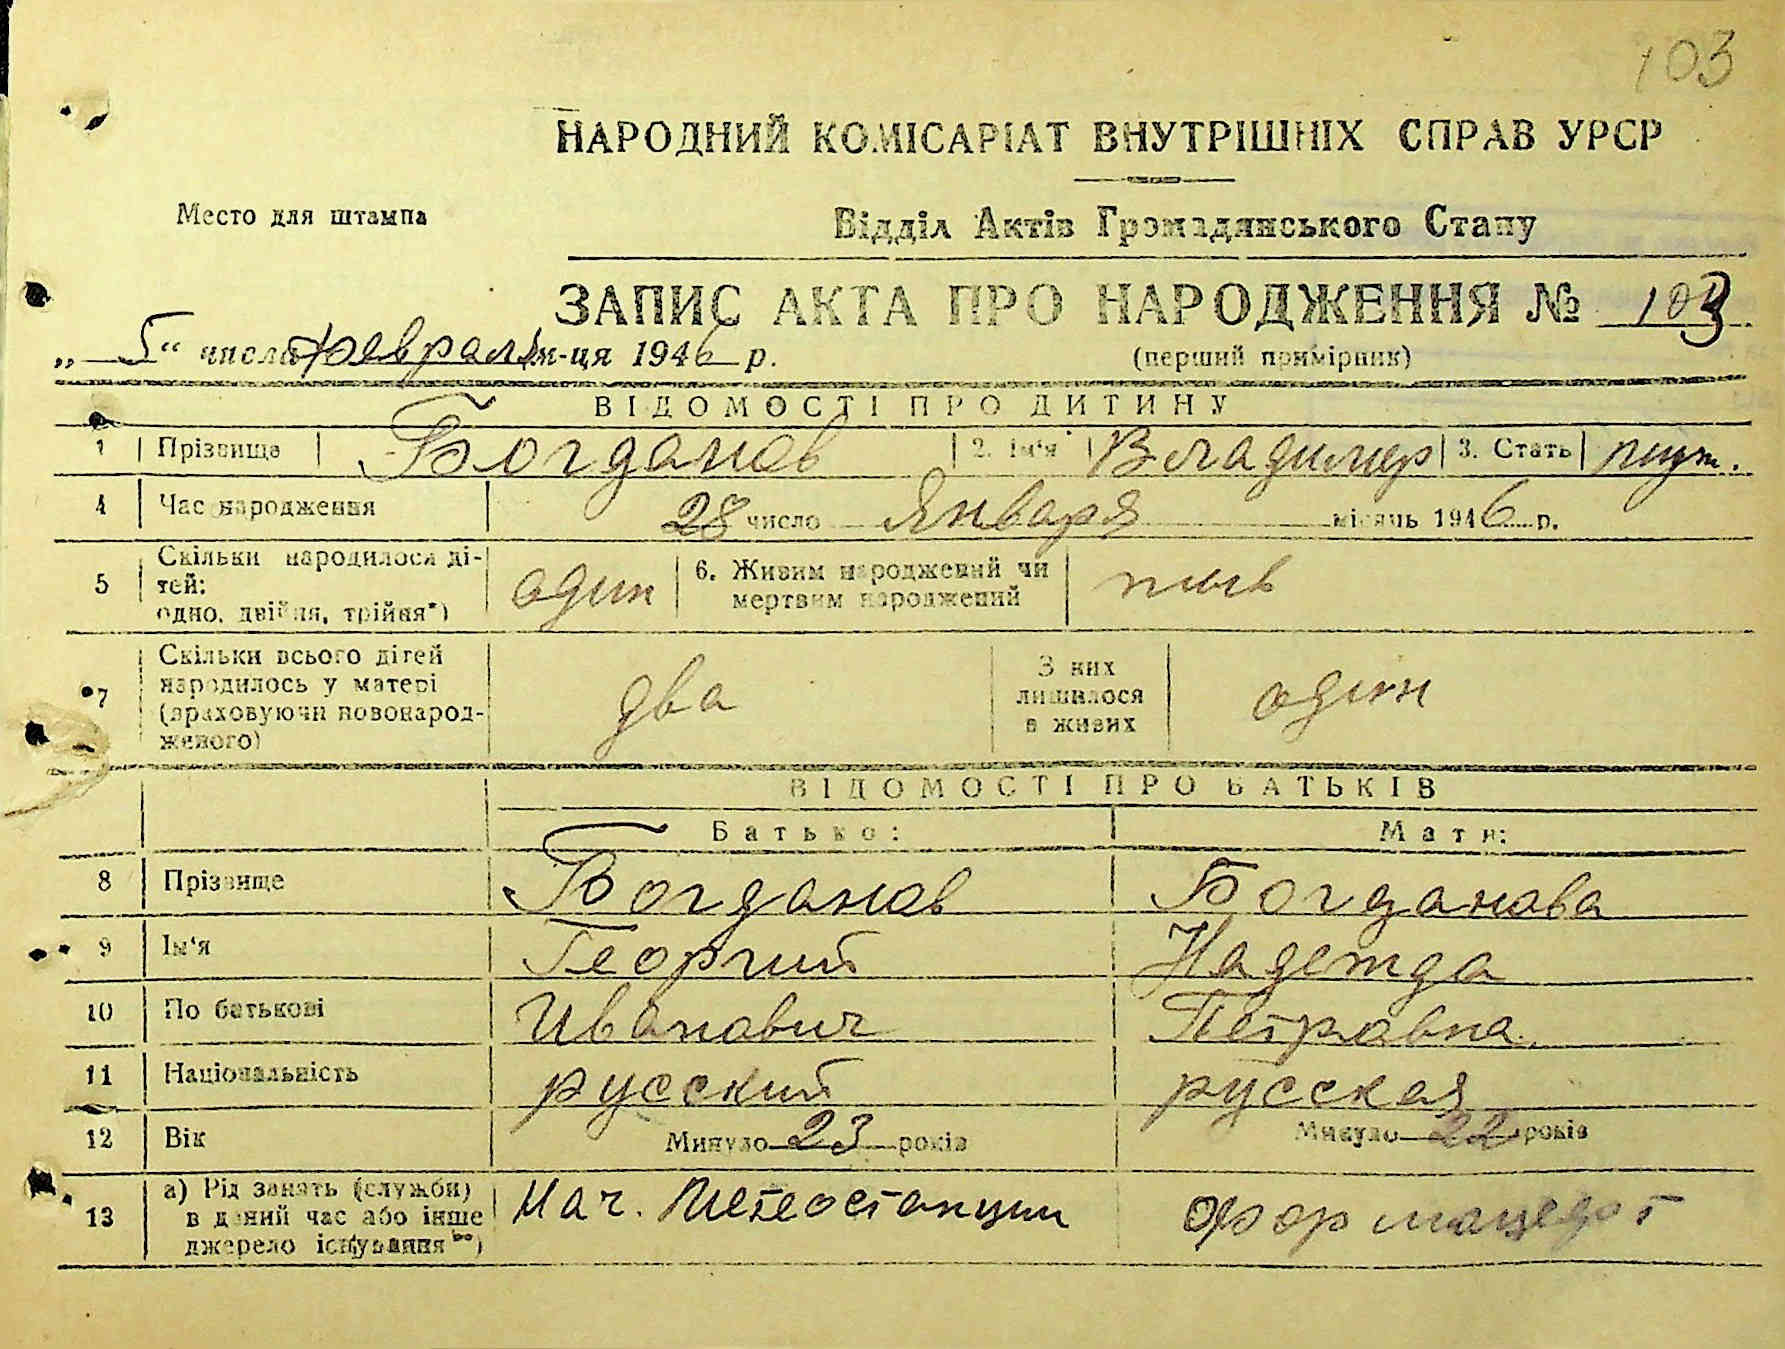 103
НАРОДНИЙ КОМІСАРІАТ ВНУТРІШНІХ СПРАВ УРСР
Место для штампа
Відділ Актів Громадянського Стану
ЗАПИС АКТА ПРО НАРОДЖЕННЯ № 103
„ 5 “ числа февраля м-ця 1946 р.
(перший примірник)
ВІДОМОСТІ ПРО ДИТИНУ
1 Прізвище Богданов 2. Ім'я Владимир 3. Стать муж.
4 Час народження 28 число Января місяць 1946 р.
5 Скільки народилося ді-
тей:
одно, двійня, трійня*) один
6. Живим народжений чи
мертвим народжений
7 Скільки всього дітей
народилось у матері
(враховуючи новонарод-
женого) два
З них
лишилося
в живих один
ВІДОМОСТІ ПРО БАТЬКІВ
Батько: Мати:
8 Прізвище Богданов Богданова
9 Ім'я Георгий Надежда
10 По батькові Иванович Петровна
11 Національність русский русская
12 Вік Минуло 23 років Минуло 22 років
13 а) Рід занять (служби)
в даний час або інше
джерело існування**) Нач. Метеостанции